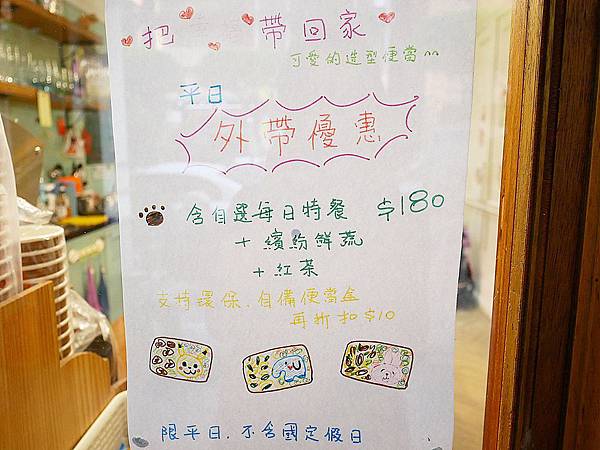 把 帶回家
可愛的造型便當^^
平日
外帶優惠
含自選每日特餐 $180
+ 繽紛鮮蔬
+ 紅茶
支持環保.自備便當盒
再折扣$10
限平日.不含國定假日